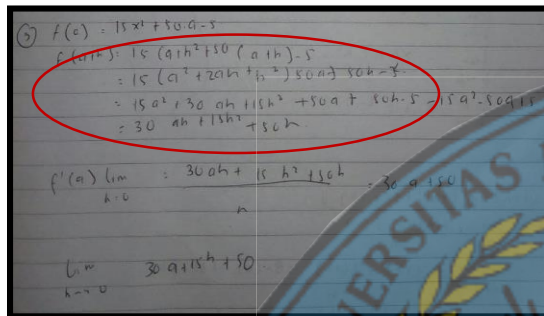 ⑤ f(a) = 15x² + 50.a - 5
f(a+h) = 15 (a+h²+50 (a+h)-5
= 15 (a² + 2ah + h²) 50a + 50h - 5.
= 15a² + 30 ah + 15h² + 50a + 50h - 5 - 15a² - 50a + 5
= 30 ah + 15h² + 50h
f'(a) lim = 30ah + 15 h² + 50h = 30 a + 50
h→0 h
lim 30a + 15h + 50
h→0
ERSITAS